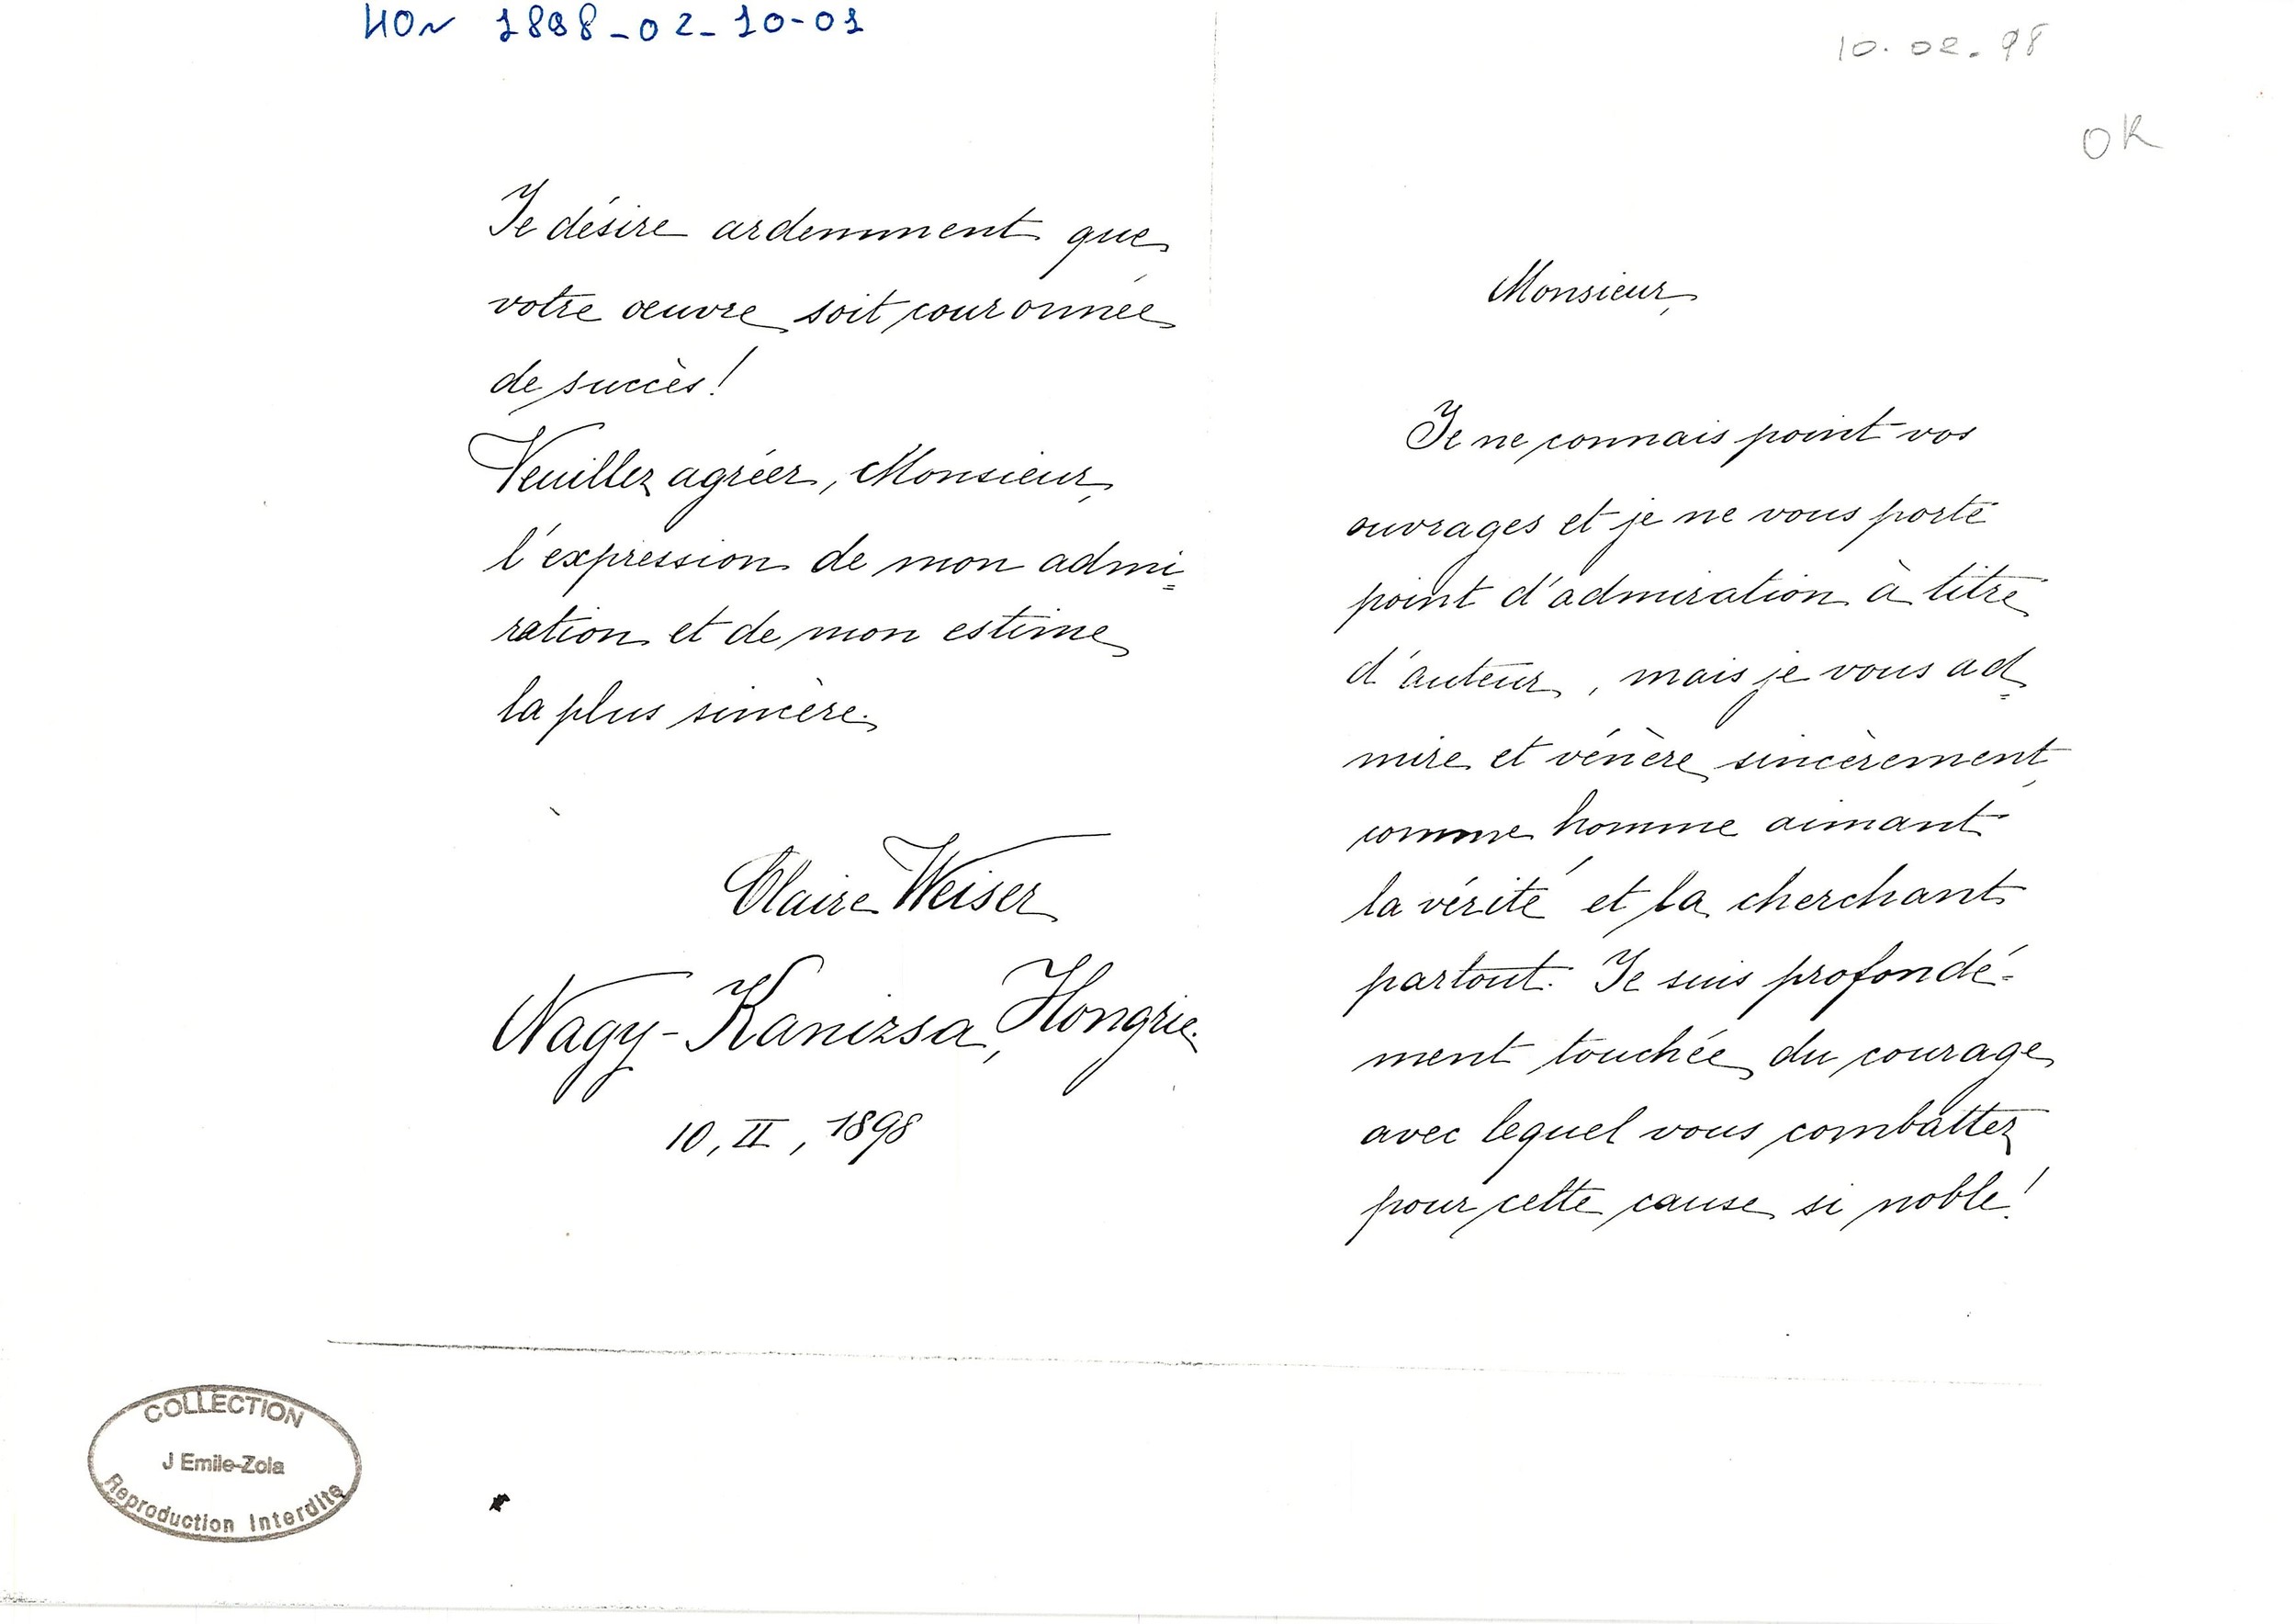 HON 1898-02-10-01
10.02.98
OK
Monsieur,
Je ne connais point vos
ouvrages et je ne vous porte
point d'admiration à titre
d'auteur, mais je vous ad=
mire et vénère sincèrement,
comme homme aimant
la vérité et la cherchant
partout. Je suis profondé-
ment touchée du courage
avec lequel vous combattez
pour cette cause si noble!
Je désire ardemment que
votre œuvre soit couronnée
de succès!
Veuillez agréer, Monsieur,
l'expression de mon admi=
ration et de mon estime
la plus sincère.
Claire Weiser
Nagy-Kanizsa, Hongrie.
10, II, 1898
COLLECTION
J Emile-Zola
Reproduction Interdite